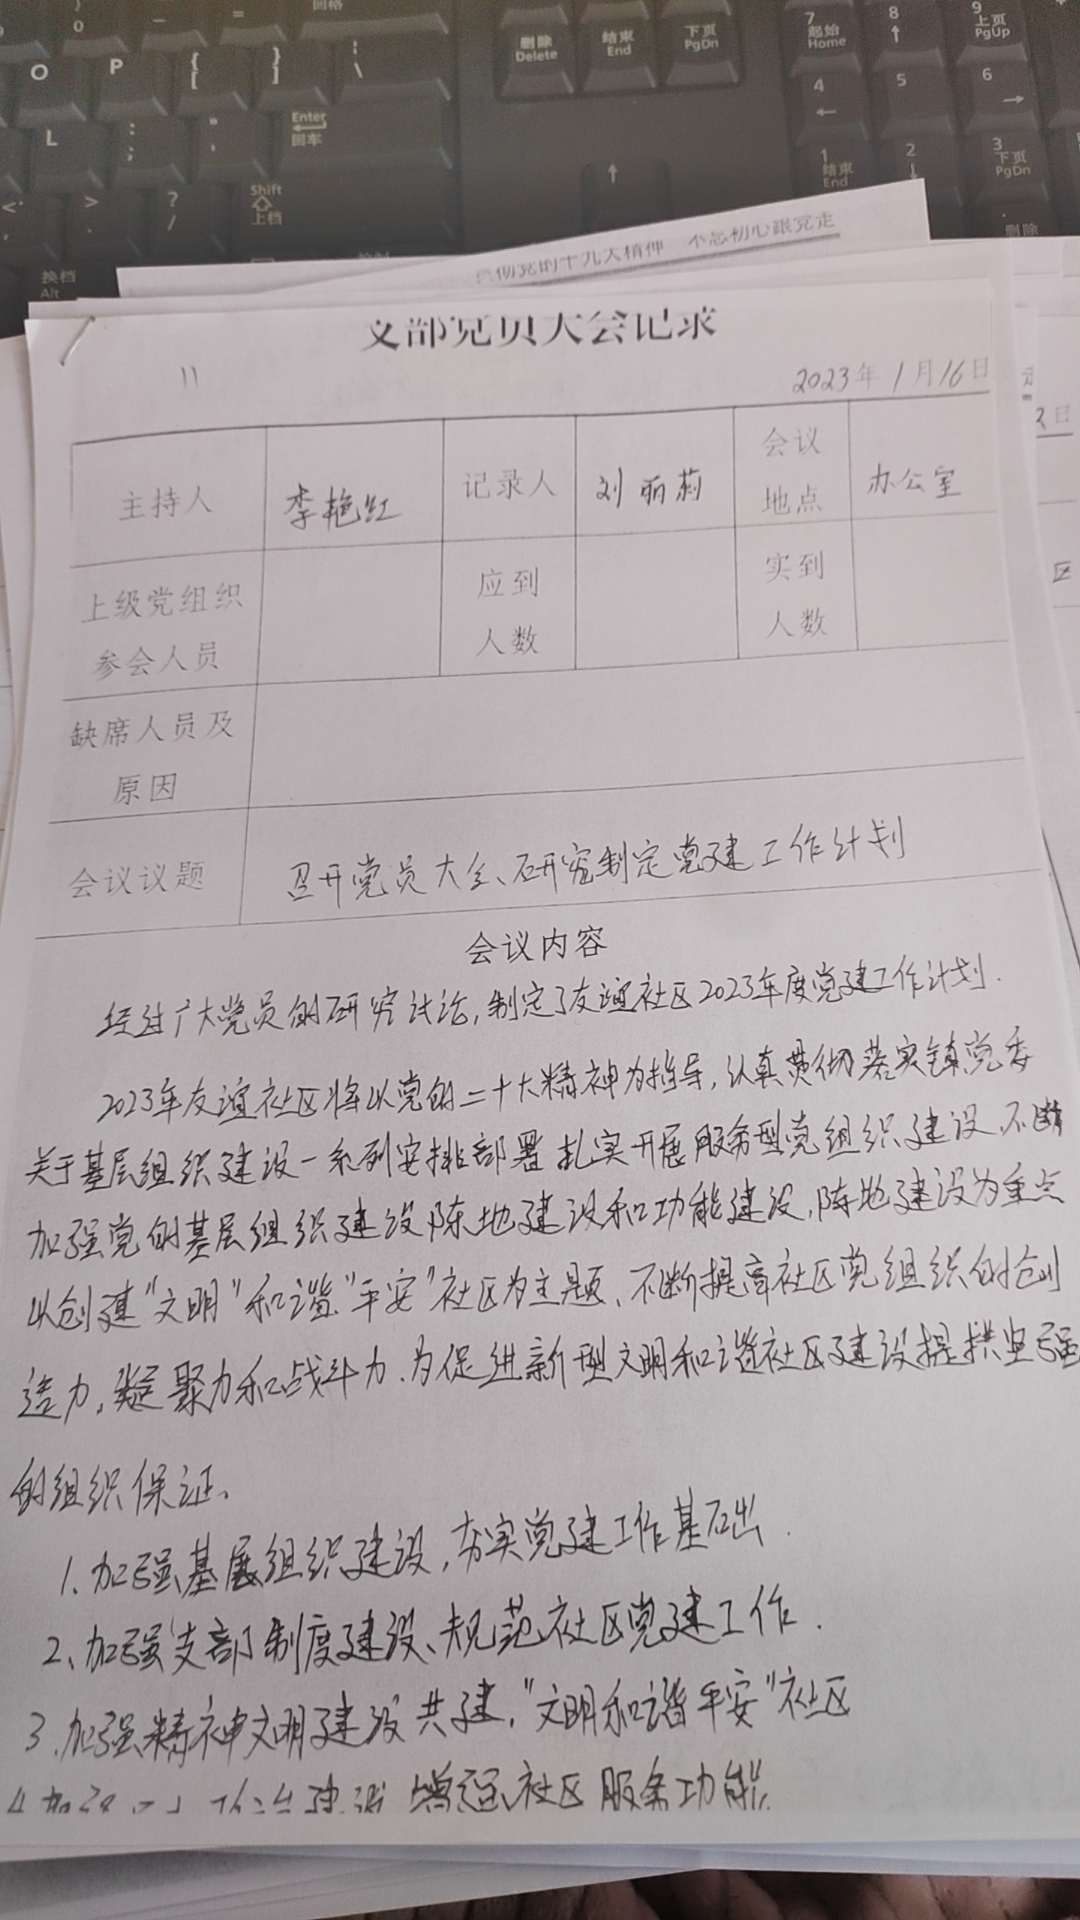 O P { [ } ] | \
删除 Delete 结束 End 下页 PgDn
7 起始 Home 8 9 上页 PgUp
L : ; " ' Enter 回车
4 5 6
< > ? / Shift 上档
1 结束 End 2 3 下页 PgDn
换档 Alt
删除
党的十九大精神 不忘初心跟党走
支部党员大会记录
11
2023年1月16日
主持人 李艳红 记录人 刘丽莉 会议地点 办公室
上级党组织参会人员 应到人数 实到人数
缺席人员及原因
会议议题 召开党员大会、研究制定党建工作计划
会议内容
经过广大党员的研究讨论,制定了友谊社区2023年度党建工作计划.
2023年友谊社区将以党的二十大精神为指导,认真贯彻落实镇党委
关于基层组织建设一系列安排部署扎实开展服务型党组织建设,不断
加强党的基层组织建设,阵地建设和功能建设,阵地建设为重点
以创建"文明"和谐"平安"社区为主题、不断提高社区党组织的创
造力,凝聚力和战斗力.为促进新型文明和谐社区建设提拱坚强
的组织保证、
1.加强基层组织建设,夯实党建工作基础.
2、加强支部制度建设、规范社区党建工作.
3.加强精神文明建设共建,"文明和谐平安"社区
增强社区服务功能.